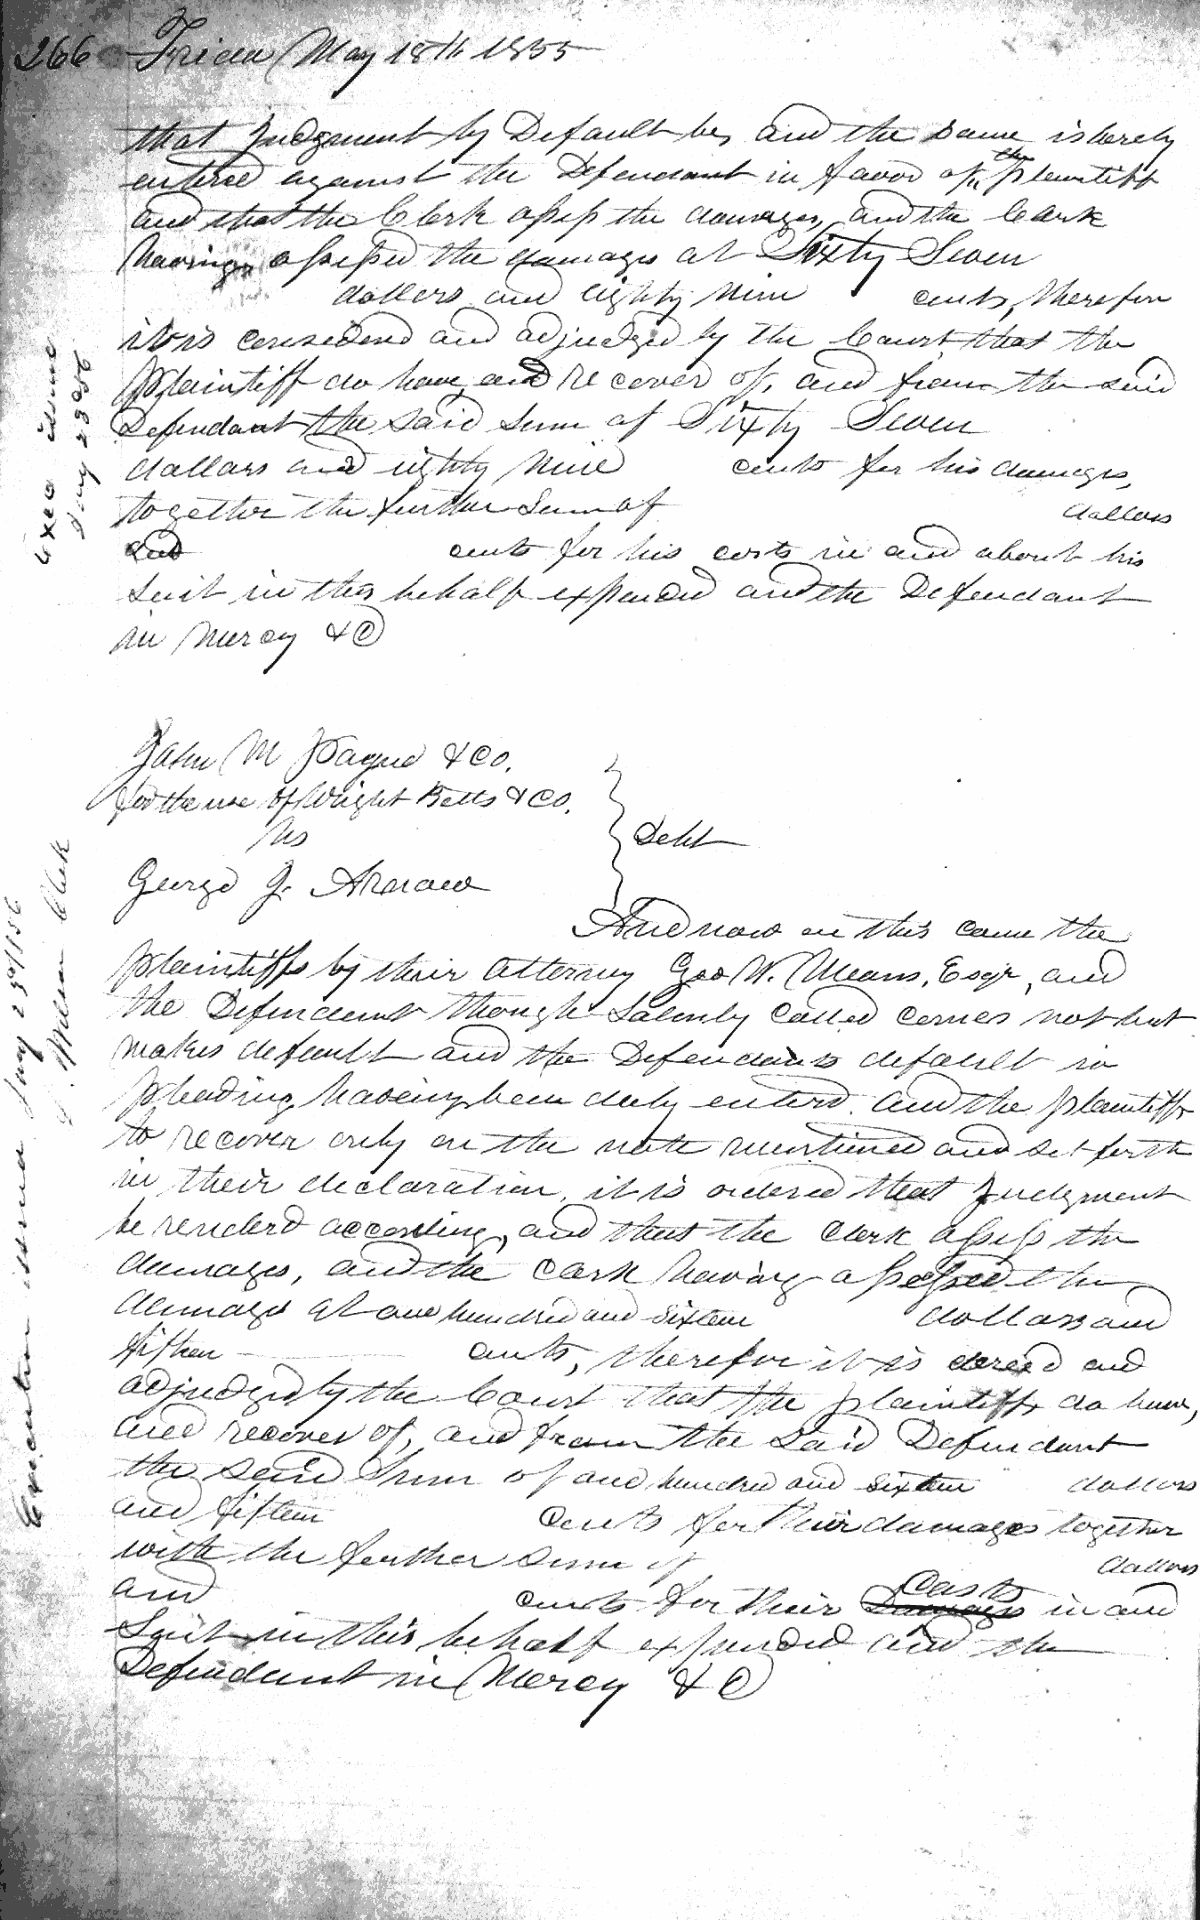 266 Friday May 18th 1855
that Judgment by Default be, and the same is hereby
entered against the Defendant in favor of the plaintiff
and that the Clerk assess the damages, and the Clerk
having assessed the damages at Sixty Seven
dollars and eighty nine cents, therefore
it is considered and adjudged by the Court that the
Plaintiff do have and recover of, and from the said
Defendant the said sum of Sixty Seven
dollars and eighty nine cents for his damages,
together the further sum of dollars
and cents for his costs in and about his
suit in this behalf expended and the Defendant
in mercy &C
Exeo issued
Jany 23d 56
John M Pague & Co.
for the use of Wright Betts & Co.
vs
George J. Arnow
Debt
And now on this came the
plaintiffs by their attorney Geo W. Means, Esqr, and
the Defendant though Solemly called comes not but
makes default and the Defendants default in
pleading having been duly enterd and the plaintiffs
to recover only on the note mentioned and set forth
in their declaration, it is ordered that Judgment
be renderd according, and that the clerk assess the
damages, and the Cark having assessed the
damage at one hundred and sixteen dollars and
fifteen cents, therefor it is and
adjudged by the Court that the plaintiffs do have,
and recover of, and from the said Defendant
the said sum of one hundred and sixteen dollars
and fifteen cents for their damages together
with the further sum of dollars
and cents for their costs in and
Suit in this behalf expended and the
Defendant in Mercy &C
Execution issued Jany 23d 1856
Wilson Clerk